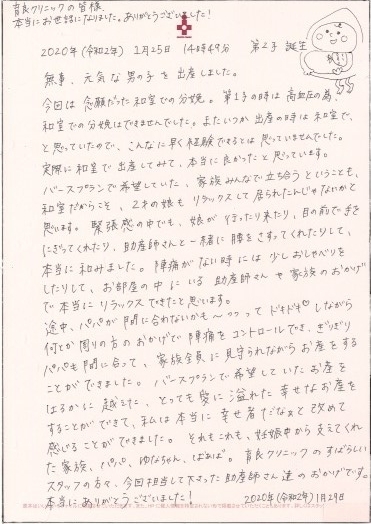 育良クリニックの皆様
本当にお世話になりました。ありがとうございました!
2020年(令和2年) 1月25日 14時49分 第2子 誕生
無事、元気な男の子を出産しました。
今回は念願だった和室での分娩。第1子の時は高血圧の為、
和室での分娩はできませんでした。またいつか出産の時は和室で、
と思っていたので、こんなに早く経験できるとは思っていませんでした。
実際に和室で出産してみて、本当に良かったと思っています。
バースプランで希望していた、家族みんなで立ち会うということも、
和室だからこそ、2才の娘もリラックスして居られたんじゃないかと
思います。緊張感の中でも、娘が行ったり来たり、目の前で手を
にぎってくれたり、助産師さんと一緒に腰をさすってくれたりして、
本当に和みました。陣痛がない時には少しおしゃべりを
したりして、お部屋の中にいる助産師さんや家族のおかげ
で本当にリラックスできたと思います。
途中、パパが間に合わないかも〜。。。ってドキドキ♡しながら
何とか周りの方のおかげで陣痛をコントロールでき、ぎりぎり
パパも間に合って、家族全員に見守られながらお産をする
ことができました。バースプランで希望していたお産を
はるかに越えた、とっても愛に溢れた幸せなお産を
することができて、私は本当に幸せ者だなぁと改めて
感じることができました。それもこれも、妊娠中から支えてくれ
た家族、パパ、ゆなちゃん、ばぁば。育良クリニックのすばらしい
スタッフの方々、今回担当して下さった助産師さん達のおかげです。
本当にありがとうございました! 2020年(令和2年)1月29日